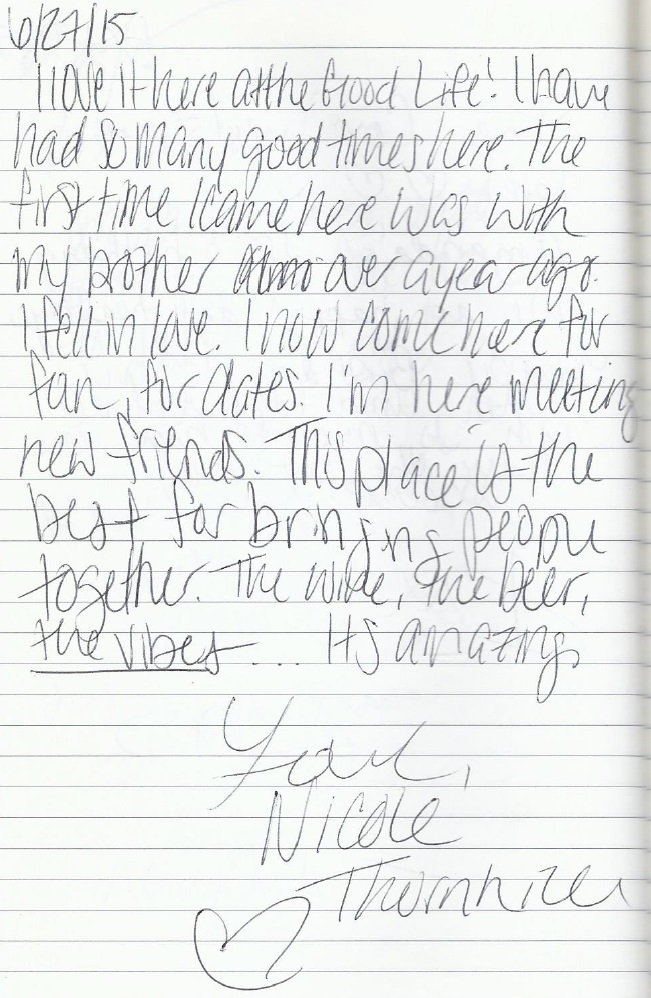 6/27/15
I love it here at the Good Life! I have
had so many good times here. The
first time I came here was with
my brother over a year ago.
I fell in love. I now come here for
fun, for dates. I'm here meeting
new friends. This place is the
best for bringing people
together. The wine, the beer,
the vibes.... Its amazing.
Nicole